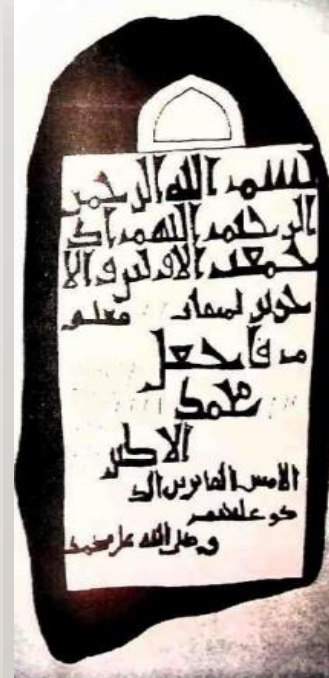 بسم الله الرحمن
الرحيم اللهم اذ
جمعت الاولين والا
خرين لميقات معلو
م فاجعل
محمد
الامنين الفائزين
عليهم
وصلى الله على محمد